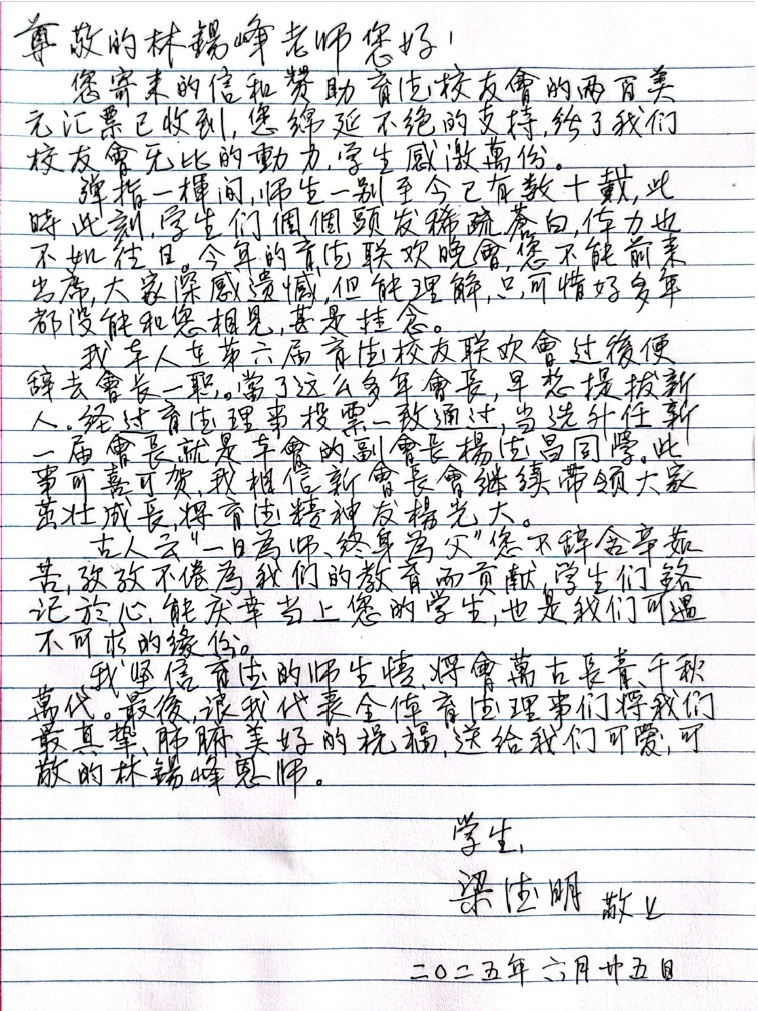 尊敬的林錫峰老师您好！
您寄来的信和赞助育德校友會的两百美
元汇票已收到，您綿延不绝的支持，给了我们
校友會无比的動力，学生感激萬份。
弹指一揮间，师生一别至今已有数十載，此
時此刻，学生们個個頭发稀疏蒼白，体力也
不如往日。今年的育德联欢晚會，您不能前来
出席，大家深感遗憾，但能理解，只可惜好多年
都没能和您相見，甚是挂念。
我本人在第六届育德校友联欢會过後便
辞去會长一职。當了这么多年會長，早想提拔新
人。经过育德理事投票一致通过，当选升任新
一届會長就是本會的副會長楊德昌同學。此
事可喜可贺，我相信新會長會继续带领大家
茁壮成長，将育德精神发揚光大。
古人云"一日為师、终身為父"您不辞含辛茹
苦，孜孜不倦為我们的教育而贡献，学生们銘
记於心，能庆幸当上您的学生，也是我们可遇
不可求的缘份。
我坚信育德的师生情，将會萬古長青、千秋
萬代。最後，讓我代表全体育德理事们将我们
最真挚、肺腑、美好的祝福，送给我们可爱，可
敬的林錫峰恩师。
学生，
梁德明 敬上
二〇二五年六月廿五日